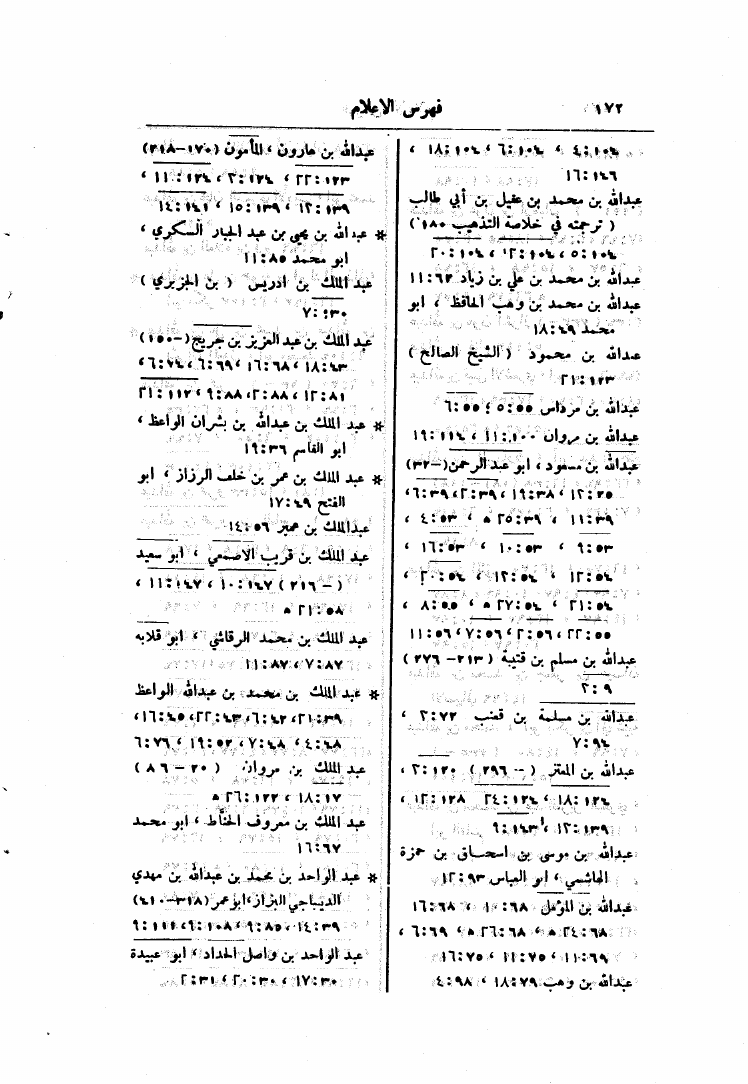 ١٧٢
فهرس الاعلام
٤:١٠٤ ، ٦:١٠٤ ، ١٨:١٠٤ ،
١٦:١٤٦
عبدالله بن محمد بن عقيل بن أبي طالب
( ترجمته في خلاصة التذهيب ١٨٠ )
٥:١٠٤ ، ١٢:١٠٤ ، ٢٠:١٠٤
عبدالله بن محمد بن علي بن زياد ١١:٦٣
عبدالله بن محمد بن وهب الحافظ ، ابو
محمد ١٨:٤٩
عبدالله بن محمود ( الشيخ الصالح )
٢١:١٢٣
عبدالله بن مرداس ٥:٥٥ ، ٦:٥٥
عبدالله بن مروان ١١:١٠٠ ، ١٩:١١٤
عبدالله بن مسعود ، ابو عبد الرحمن (–٣٢)
١٢:٣٥ ، ١٩:٣٨ ، ٢:٣٩ ، ٦:٣٩ ،
١١:٣٩ ، ٢٥:٣٩ ه ، ٤:٥٣ ،
٩:٥٣ ، ١٠:٥٣ ، ١٦:٥٣ ،
١٢:٥٤ ، ١٣:٥٤ ، ٢٠:٥٤ ،
٢١:٥٤ ، ٢٧:٥٤ ه ، ٨:٥٥ ،
٢٢:٥٥ ، ٢:٥٦ ، ٧:٥٦ ، ١١:٥٦
عبدالله بن مسلم بن قتيبة ( ٢١٣– ٢٧٦ )
٢:٩
عبدالله بن مسلمة بن قعنب ٢:٧٢ ،
٧:٩٤
عبدالله بن المعتز ( – ٢٩٦ ) ٢:١٢٠ ،
١٨:١٢٤ ، ٢٤:١٢٤ ، ١٢:١٢٨ ،
١٢:١٣٩ ، ٩:١٤٣
عبدالله بن موسى بن اسحاق بن حمزة
الهاشمي ، ابو العباس ١٢:٩٣
عبدالله بن المؤمل ١٠:٦٨ ، ١٦:٦٨
٢٤:٦٨ ه ، ٢٦:٦٨ ه ، ٦:٦٩ ،
١١:٦٩ ، ١١:٧٥ ، ١٦:٧٥
عبدالله بن وهب ١٨:٧٩ ، ٤:٩٨
عبدالله بن هارون ، المأمون (١٧٠–٢١٨)
٢٢:١٢٣ ، ٢:١٢٤ ، ١١:١٢٤ ،
١٢:١٣٩ ، ١٥:١٣٩ ، ١٤:١٤١
* عبدالله بن يحيى بن عبد الجبار السكري ،
ابو محمد ١١:٨٥
عبد الملك بن ادريس ( بن الجزيري )
٧:١٣٠
عبد الملك بن عبد العزيز بن جريج (–١٥٠)
١٨:٤٣ ، ١٦:٦٨ ، ٦:٦٩ ، ٦:٧٤ ،
١٢:٨١ ، ٢:٨٨ ، ٩:٨٨ ، ٢١:١١٢
* عبد الملك بن عبدالله بن بشران الواعظ ،
ابو القاسم ١٩:٣٦
* عبد الملك بن عمر بن خلف الرزاز ، ابو
الفتح ١٧:٤٩
عبدالملك بن عمير ١٤:٥٦
عبد الملك بن قريب الاصمعي ، ابو سعيد
( – ٢١٦ ) ١٠:١٤٧ ، ١١:١٤٧ ،
٢١:٥٨ ه
عبد الملك بن محمد الرقاشي ، ابو قلابه
٧:٨٧ ، ١١:٨٧
* عبد الملك بن محمد بن عبدالله الواعظ
٢١:٣٩ ، ٦:٤٢ ، ٢٢:٤٣ ، ١٦:٤٥ ،
٤:٤٨ ، ٧:٤٨ ، ١٩:٥٢ ، ٦:٧٦
عبد الملك بن مروان ( ٢٠ – ٨٦ )
١٨:١٧ ، ٢٦:١٢٢ ه
عبد الملك بن معروف الخياط ، ابو محمد
١٦:٦٧
* عبد الواحد بن محمد بن عبدالله بن مهدي
الديباجي البزاز، ابو عمر (٣١٨–٤١٠)
١٤:٣٩ ، ٩:٨٥ ، ٦:١٠٨ ، ٩:١١١
عبد الواحد بن واصل الحداد ، ابو عبيدة
١٧:٣٠ ، ٢٠:٣٠ ، ٢:٣١